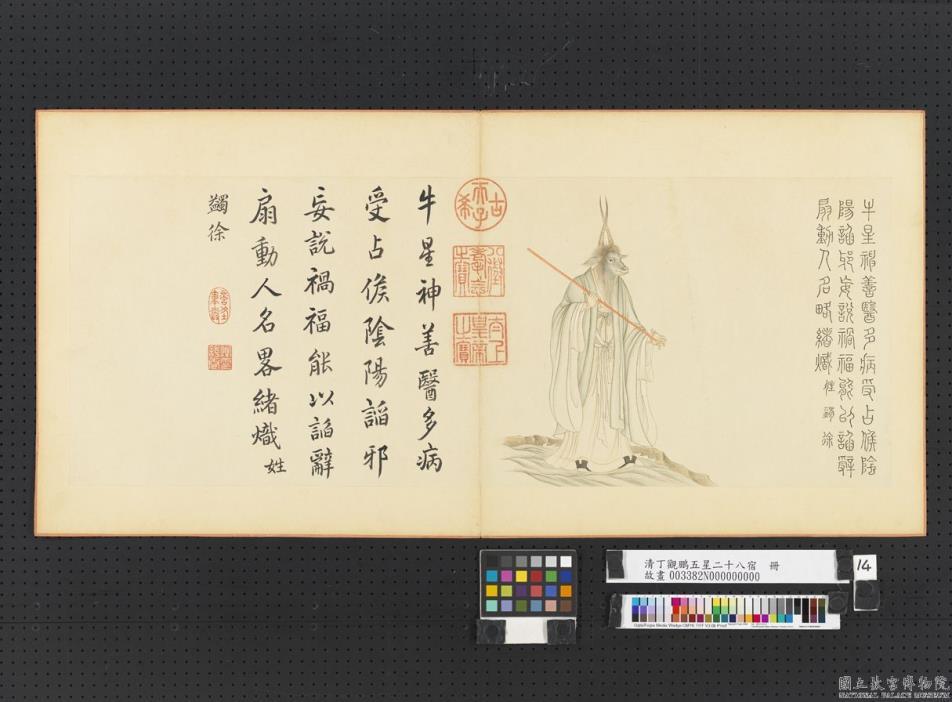 牛星神善醫多病受占候陰
陽謟邪妄說禍福能以謟辭
扇動人名略緒熾姓蠲徐
古希天子
八徵耄念之寶
太上皇帝之寶
牛星神善醫多病
受占候陰陽謟邪
妄說禍福能以謟辭
扇動人名畧緒熾姓
蠲徐
清丁觀鵬五星二十八宿 冊
故畫 003382N000000000
14
國立故宮博物院
NATIONAL PALACE MUSEUM